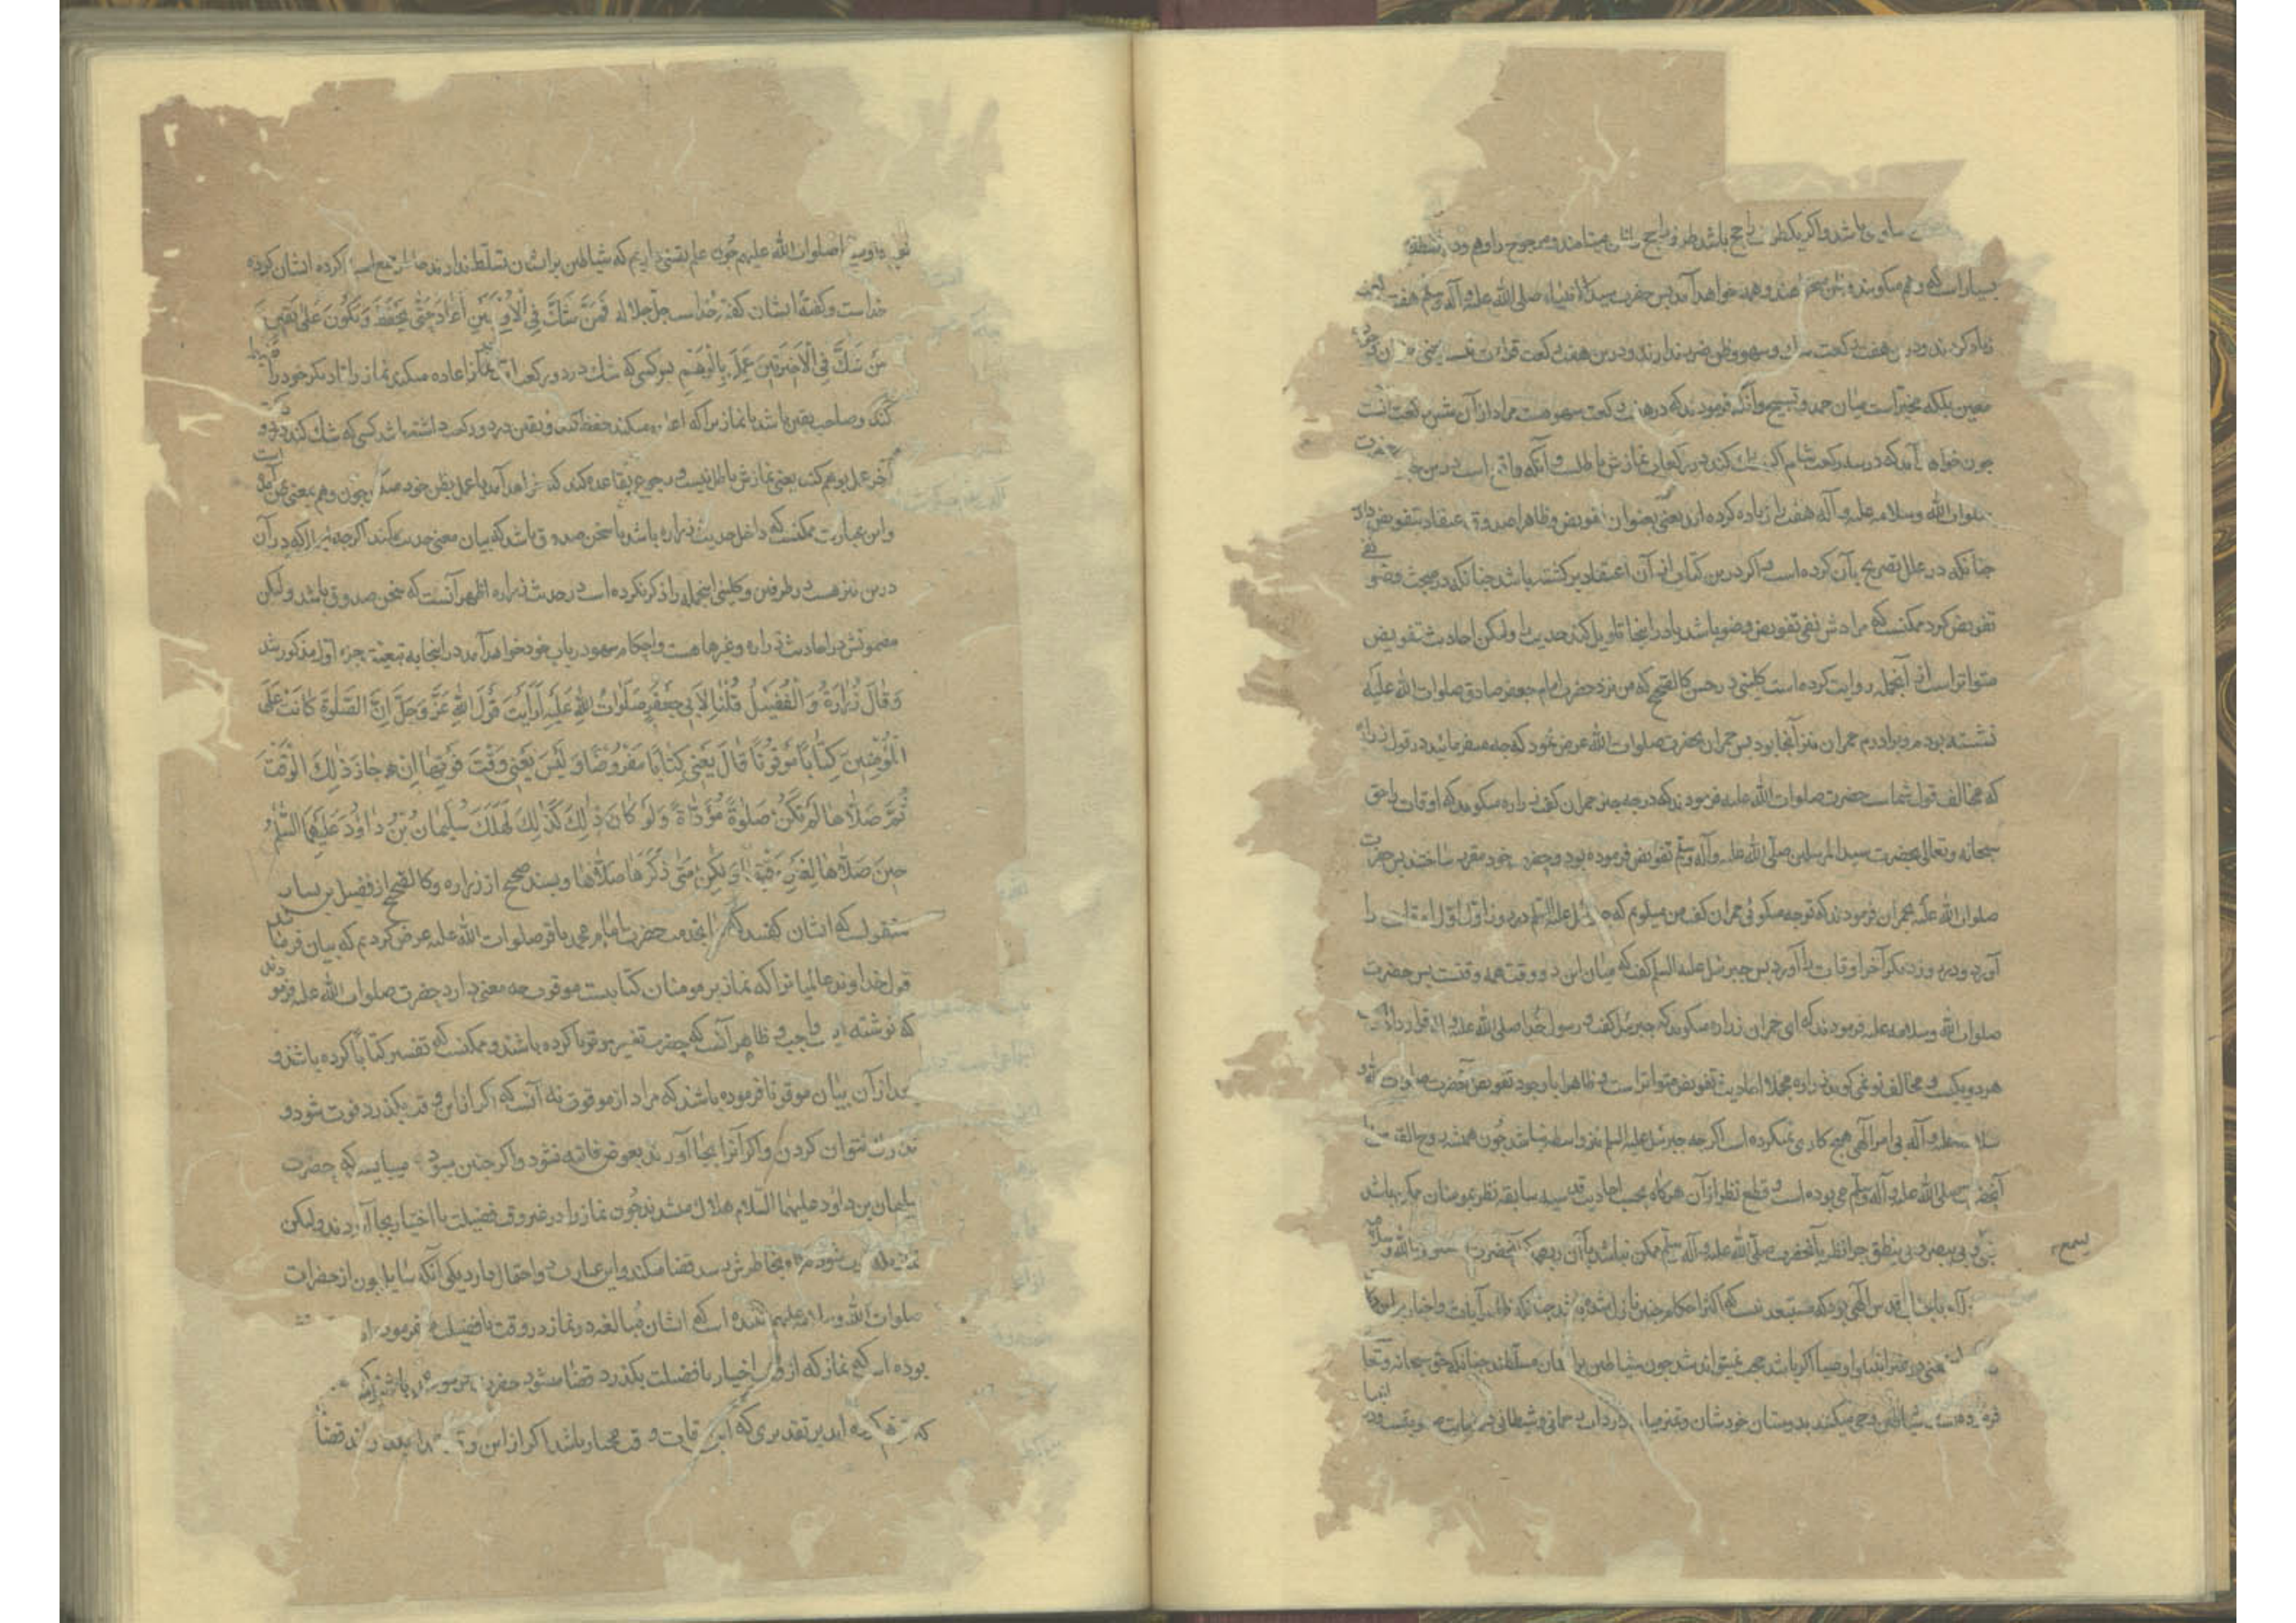 باشد و اگر یکطرف راجح باشد طرف راجح را ظن مینامند و مرجوح را وهم و در
بسیار است که وهم میگویند و ظن میخواهند و همه خواهد آمد پس حضرت سید الانبیاء صلی الله علیه و آله و سلم هفت رکعت
زیاد کردند و درین هفت رکعت شک و سهو و ظن ضرر ندارند و درین هفت رکعت قرائت نیست یعنی
معین بلکه مخیر است میان حمد و تسبیح و آنکه فرمودند که در هفت رکعت سهو هست مراد از آن شش رکعت است
چون خواهد آمد که در سه رکعت شام اگر شک کند در رکعات نمازش باطلست و آنکه واقع است درین
صلوات الله و سلامه علیه و آله هفت را زیاده کرده‌اند یعنی بعنوان تفویض و ظاهرا صدوق اعتقاد بتفویض دارد
چنانکه در علل تصریح بآن کرده است و اگر درین کتاب از آن اعتقاد برگشته باشد چنانکه در مبحث وضو نفی
تفویض کرد ممکنست که مرادش نفی تفویض وضو باشد یا در اینجا تاویل کند حدیث را و لیکن احادیث تفویض
متواتر است از آنجمله روایت کرده است کلینی در حسن کالصحیح که من نزد حضرت امام جعفر صادق صلوات الله علیه
نشسته بودم و برادرم حمران نیز آنجا بود پس حمران بحضرت صلوات الله عرض نمود که چه میفرمائید در قول زراره
که مخالف قول شماست حضرت صلوات الله علیه فرمودند که در چه چیز حمران گفت زراره میگوید که اوقات را حق
سبحانه و تعالی بحضرت سید المرسلین صلی الله علیه و آله و سلم تفویض فرموده بود و حضرت خود مقرر ساختند پس حضرت
صلوات الله علیه بحمران فرمودند که تو چه میگوئی حمران گفت من میگویم که جبرئیل علیه السلم در روز اول اول اوقات را
آورد و در روز دیگر آخر اوقات را آورد پس جبرئیل علیه السلم گفت که میان این دو وقت همه وقتست پس حضرت
صلوات الله و سلامه علیه فرمودند که ای حمران زراره میگوید که جبرئیل گفت و رسول خدا صلی الله علیه و آله قرار داد
هر دو یکیست و مخالف تو نمی‌گوید زراره مجملا احادیث تفویض متواتر است و ظاهرا با وجود تفویض آنحضرت صلوات الله و
سلامه علیه و آله بی امر آلهی هیچ کاری نمیکرده است اگر چه جبرئیل علیه السلم نیز واسطه نباشد چون همیشه روح القدس با
آنحضرت صلی الله علیه و آله و سلم می‌بوده است و قطع نظر از آن هرگاه بحسب احادیث قدسیه سابقه نظر بمومنان ممکن باشد
بی یسمع و بی یبصر و بی ینطق چرا نظر بآنحضرت صلی الله علیه و آله و سلم ممکن نباشد با آن ربطی که آنحضرت صلوات الله و سلامه
یسمع
قدس الهی بود که مستبعد نیست که اکثر احکام چنین نازل شده باشد چنانکه ظاهر آیات و اخبار
یعنی در غیر انبیاء و اوصیا اگر باشد حجت نمیتواند شد چون شیاطین بر ایشان مسلطند چنانکه حق سبحانه و تعا
فرموده است شیاطین وحی میکنند بدوستان خودشان و تمیز میان واردات رحمانی و شیطانی در نهایت صعوبتست و در انبیا
و اوصیا صلوات الله علیهم چون علم یقینی داریم که شیاطین بر ایشان تسلط ندارند خاطر جمع است کرده ایشان کرده
خداست و گفته ایشان گفته خداست جل جلاله فَمَنْ شَكَّ فِي الْأُولَيَيْنِ أَعَادَ حَتَّى يَحْفَظَ وَيَكُونَ عَلَى يَقِينٍ وَ
مَنْ شَكَّ فِي الْأَخِيرَتَيْنِ عَمِلَ بِالْوَهْمِ پس کسی که شک در دو رکعت اول نماز اعاده میکند نماز را تا دیگر خود را ضبط
کند و صاحب یقین باشد یا نمازیرا که اعاده میکند حفظ کند و یقین در دو رکعت داشته باشد کسی که شک کند در دو رکعت
آخر عمل بوهم کند یعنی نمازش باطل نیست و رجوع بقاعده کند که خواهد آمد یا عمل بظن خود میکند چون وهم بمعنی ظن آمده است
و این عبارت ممکنست که داخل حدیث زراره باشد یا سخن صدوق باشد که بیان معنی حدیث میکند اگر چه غیر از که در آن
درین نیز هست در طرفین و کلینی اینجمله را ذکر نکرده است در حدیث زراره اظهر آنست که سخن صدوق باشد و لیکن
مضمونش در احادیث زراره و غیرها هست و احکام سهو در باب خود خواهد آمد در اینجا به تبعیة جزء اول مذکور شد
وَقَالَ زُرَارَةُ وَالْفُضَيْلُ قُلْنَا لِأَبِي جَعْفَرٍ صَلَوَاتُ اللهِ عَلَيْهِ أَرَأَيْتَ قَوْلَ اللهِ عَزَّ وَجَلَّ إِنَّ الصَّلٰوةَ كَانَتْ عَلَى
الْمُؤْمِنِينَ كِتَابًا مَوْقُوتًا قَالَ يَعْنِي كِتَابًا مَفْرُوضًا وَلَيْسَ يَعْنِي وَقْتَ فَوْتِهَا إِنْ جَازَ ذٰلِكَ الْوَقْتَ
ثُمَّ صَلَّاهَا لَمْ تَكُنْ صَلٰوةً مُؤَدَّاةً وَلَوْ كَانَ ذٰلِكَ كَذٰلِكَ لَهَلَكَ سُلَيْمَانُ بْنُ دَاوُدَ عَلَيْهِمَا السَّلٰمُ
حِينَ صَلَّاهَا لِغَيْرِ وَقْتِهَا وَلٰكِنْ مَتَى ذَكَرَهَا صَلَّاهَا و بسند صحیح از زراره و کالصحیح از فضیل بن یسار
منقولست که ایشان گفتند که ما بخدمت حضرت امام محمد باقر صلوات الله علیه عرض کردیم که بیان فرمائید
قول خداوند عالمیانرا که نماز بر مومنان کتابیست موقوت چه معنی دارد حضرت صلوات الله علیه فرمودند
که نوشته ایست واجب و ظاهر آنست که حضرت تفسیر موقوتا کرده باشند و ممکنست که تفسیر کتابا کرده باشند و
بعد از آن بیان موقوتا فرموده باشند که مراد از موقوت نه آنست که اگر از این وقت بگذرد فوت شود و
نتوان کردن و اگر آنرا بجا آورند بعوض فائته نشود و اگر چنین میبود میبایست که حضرت
سلیمان بن داود علیهما السلام هلاک میشدند چون نماز را در غیر وقت فضیلت یا اختیار بجا آوردند و لیکن
شود هرگاه بخاطرش رسد قضا میکند و این عبارت دو احتمال دارد یکی آنکه سایلا چون از حضرات
صلوات الله و سلامه علیهم شنیده است که ایشان مبالغه در نماز در وقت با فضیلت میفرمودند
بوده است که نماز که از وقت اختیار یا فضیلت بگذرد قضا میشود حضرت فرمودند
که اید بر تقدیری که این اوقات وقت مختار باشد اگر از این وقت قضا